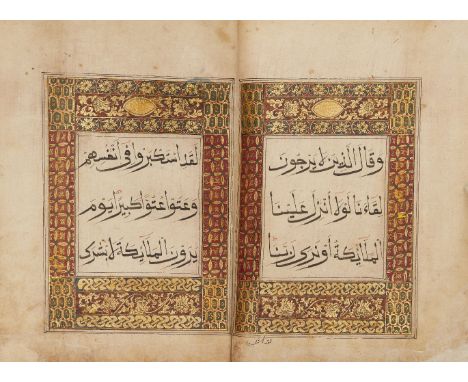 وقال الذين لا يرجون
لقاءنا لولا انزل علينا
الملائكة أو نرى ربنا
لقد استكبروا في أنفسهم
وعتوا عتوا كبيرا يوم
يرون الملائكة لا بشرى